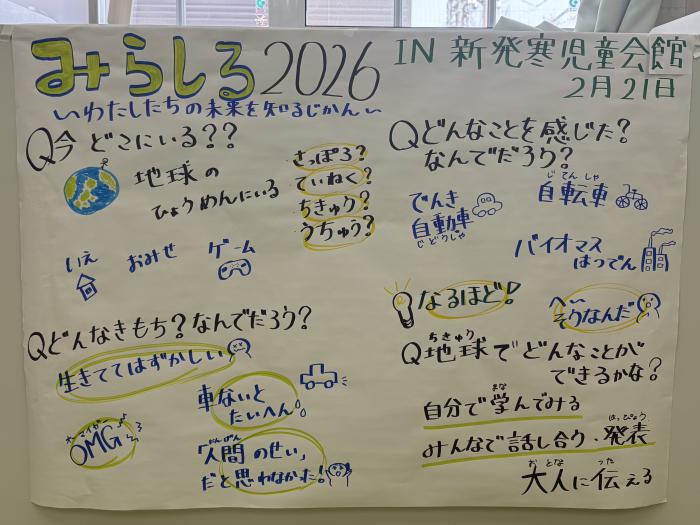 みらしる2026
IN 新発寒児童会館
2月21日
〃わたしたちの未来を知るじかん〃
Q今 どこにいる??
地球の
ひょうめんにいる
さっぽろ?
ていねく?
ちきゅう?
うちゅう?
いえ
おみせ
ゲーム
Qどんなきもち?なんでだろう?
生きててはずかしい
車ないと
たいへん。
オーマイガー
OMG
「人間のせい」
にんげん
だと思わなかった!
Qどんなことを感じた?
なんでだろう?
でんき
自動車
じどうしゃ
じてんしゃ
自転車
バイオマス
はつでん
なるほど!
へぇ〜
そうなんだ
ちきゅう
Q地球でどんなことが
できるかな?
まな
自分で学んでみる
はっぴょう
みんなで話し合う・発表
おとな つた
大人に伝える